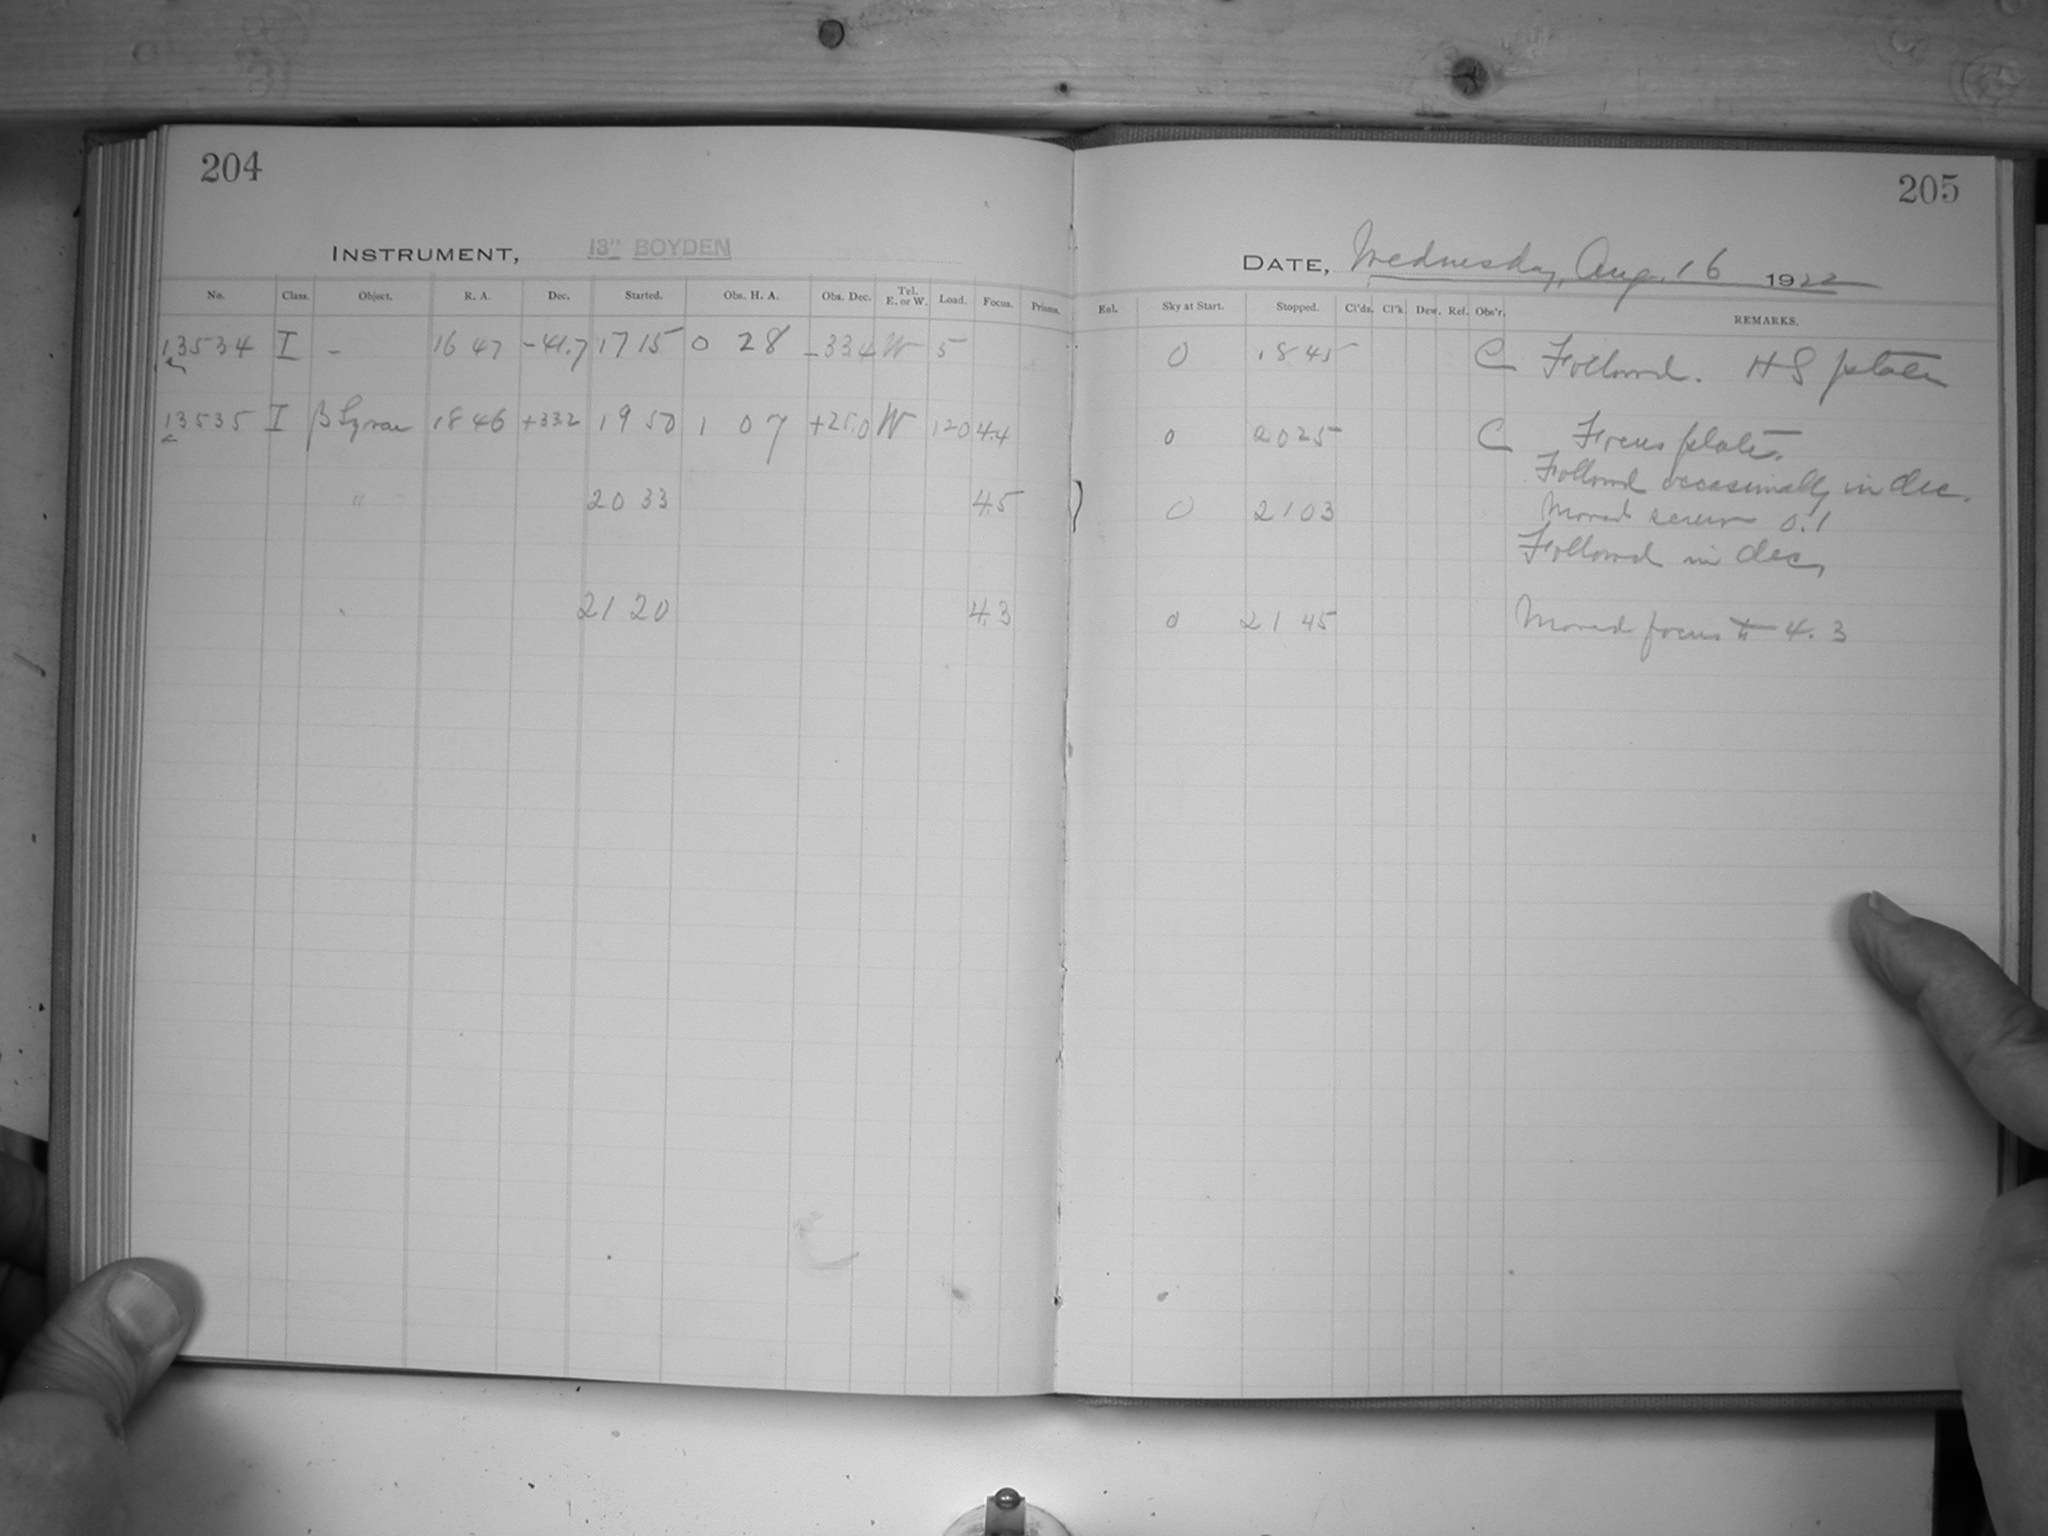 204
205
INSTRUMENT, 13" BOYDEN
DATE, Wednesday, Aug. 16 1922
No. Class. Object. R. A. Dec. Started. Obs. H. A. Obs. Dec. Tel. E. or W. Load. Focus. Prisms. Enl. Sky at Start. Stopped. Cl'ds. Cl'k. Dew. Ref. Obs'r. REMARKS.
13534 I - 16 47 -41.7 17 15 0 28 -33.4 W 5 0 18 45 C Followed. HS plate
13535 I β Lyrae 18 46 +33.2 19 50 1 07 +25.0 W 120 4.4 0 20 25 C Focus plate.
Followed occasionally in dec.
" 20 33 4.5 0 21 03 Moved screw 0.1
Followed in dec.
" 21 20 4.3 0 21 45 Moved focus to 4.3